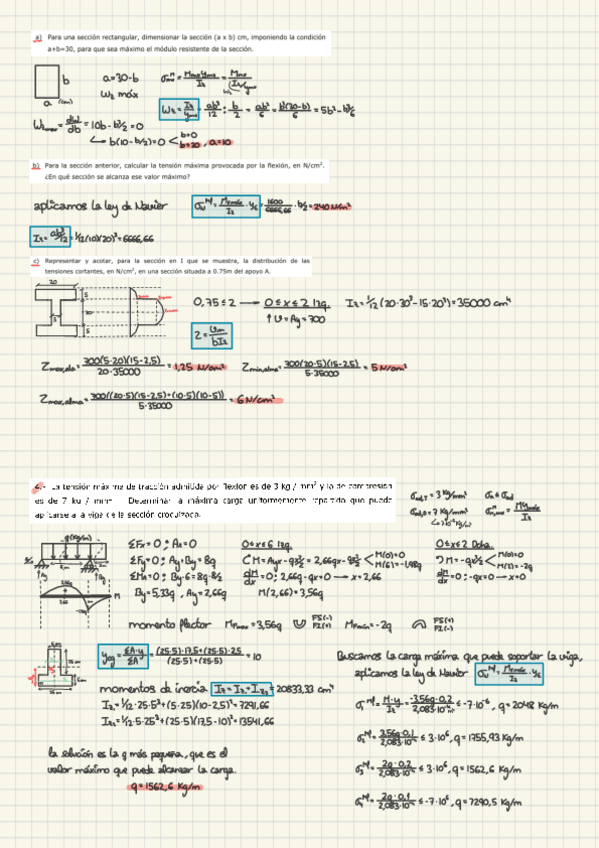 a) Para una sección rectangular, dimensionar la sección (a x b) cm, imponiendo la condición
a+b=30, para que sea máximo el módulo resistente de la sección.
b
a (cm)
a=30-b
Wz máx
Wz = Iz/ymax = ab³/12 : b/2 = ab²/6 = b²(30-b)/6 = 5b²-b³/6
Wz max = dW/db = 10b - b²/2 = 0
b(10-b/2)=0 b=0
b=20, a=10
b) Para la sección anterior, calcular la tensión máxima provocada por la flexión, en N/cm².
¿En qué sección se alcanza ese valor máximo?
aplicamos la ley de Navier
= 1600/6666,66 · b/2 = 240 N/cm²
Iz = ab³/12 = 1/12 (10)(20)³ = 6666,66
c) Representar y acotar, para la sección en I que se muestra, la distribución de las
tensiones cortantes, en N/cm², en una sección situada a 0.75m del apoyo A.
20
5
20
5
5
0,75 ≤ 2 → 0 ≤ x ≤ 2 Izq.
↑ V = Ay = 300
Iz = 1/12 (20·30³ - 15·20³) = 35000 cm⁴
Zmax,ala = 300(5·20)(15-2,5) / 20·35000 = 1,25 N/cm²
Zmin,alma = 300(20·5)(15-2,5) / 5·35000 = 5 N/cm²
Zmax,alma = 300((20·5)(15-2,5)+(10·5)(10-5)) / 5·35000 = 6 N/cm²
La tensión máxima de tracción admitida por flexión es de 3 kg / mm² y la de compresión
es de 7 kg / mm². Determinar la máxima carga uniformemente repartida que puede
aplicarse a la viga de la sección croquizada.
σad,T = 3 kg/mm²
σad,c = 7 kg/mm²
q (kg/m)
Ay
By
M
ΣFx = 0 ; Ax = 0
ΣFy = 0 ; Ay + By = 8q
ΣMA = 0 ; By·6 = 8q·8/2
By = 5,33q , Ay = 2,66q
0 ≤ x ≤ 6 Izq.
M = Ayx - qx²/2 = 2,66qx - qx²/2 M(0)=0
M(6)=-1,98q
dM/dx = 0 ; 2,66q - qx = 0 → x = 2,66
M(2,66) = 3,56q
0 ≤ x ≤ 2 Dcha.
M = -qx²/2 M(0)=0
M(2)=-2q
dM/dx = 0 ; -qx = 0 → x = 0
momento flector MFmax = 3,56q
MFmin = -2q
ycg = ΣA·y/ΣA = (25·5)·17,5+(25·5)·2,5 / (25·5)+(25·5) = 10
momentos de inercia Iz = Iz1 + Iz2 = 20833,33 cm⁴
Iz1 = 1/12·25·5³ + (5·25)(10-2,5)² = 7291,66
Iz2 = 1/12·5·25³ + (25·5)(17,5-10)² = 13541,66
Buscamos la carga máxima que puede soportar la viga,
aplicamos la ley de Navier
≤ -7·10⁶ , q = 2048 Kg/m
≤ 3·10⁶ , q = 1755,93 Kg/m
≤ 3·10⁶ , q = 1562,6 Kg/m
≤ -7·10⁶ , q = 7290,5 Kg/m
la solución es la q más pequeña, que es el
valor máximo que puede alcanzar la carga.
q = 1562,6 Kg/m